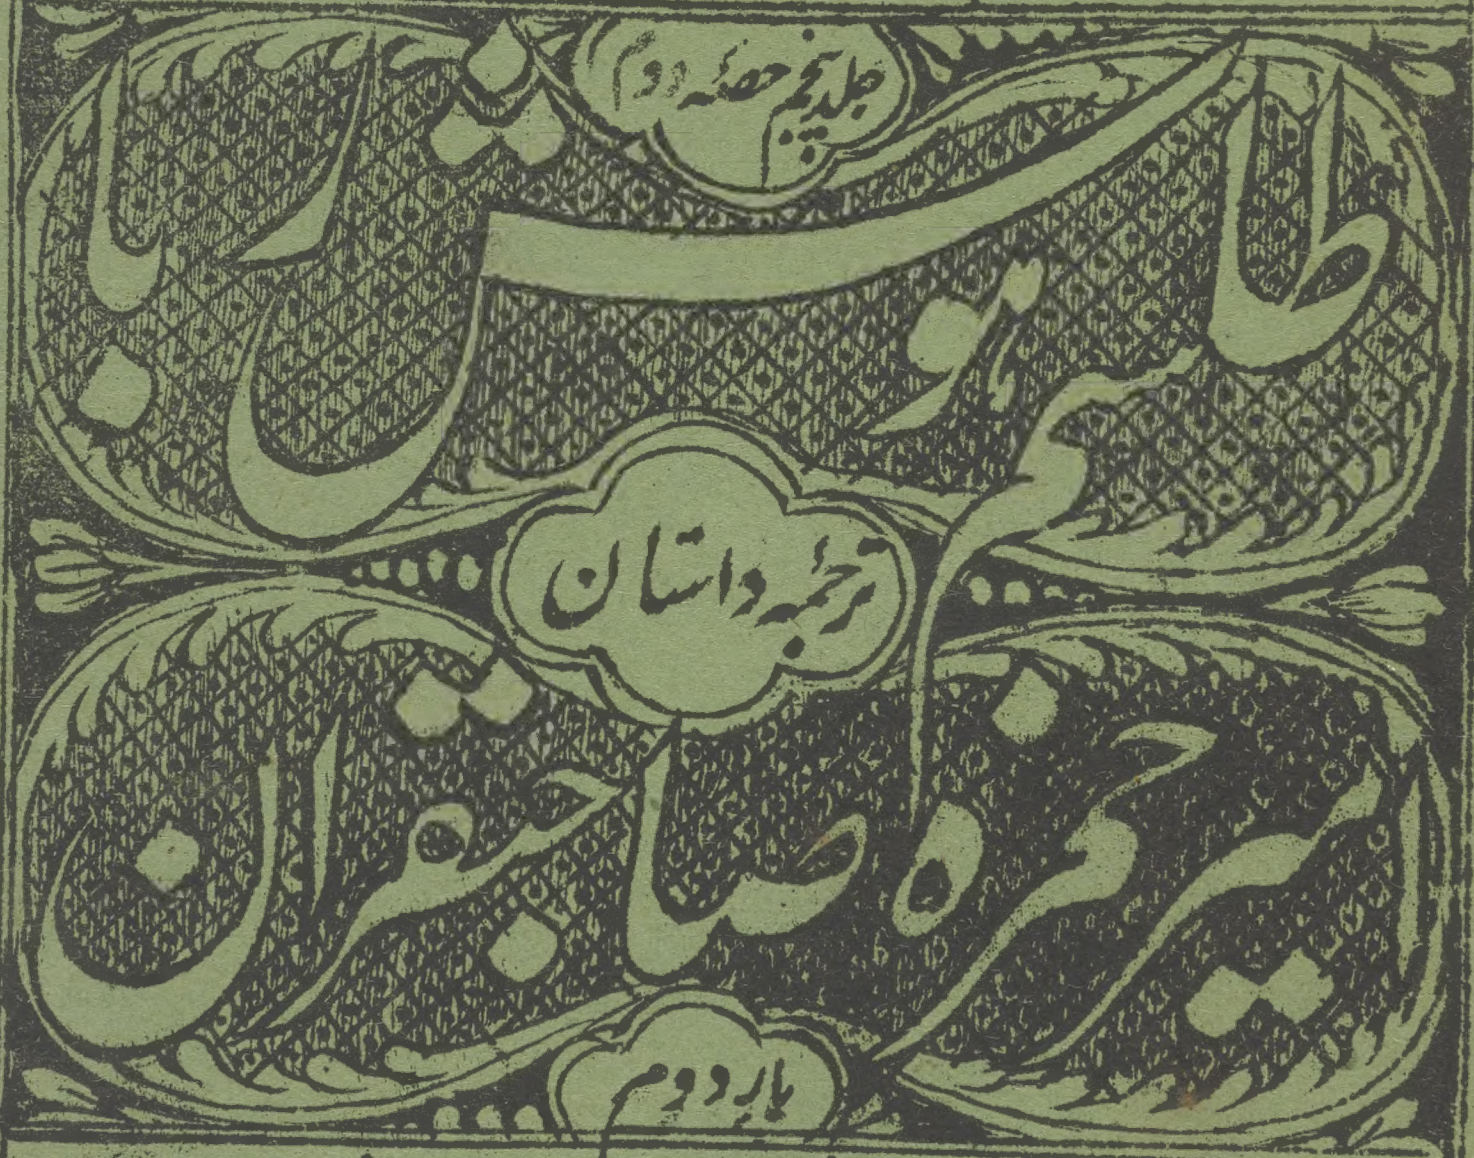 جلد پنجم حصہ دوم
طلسم ہوش ربا
ترجمہ داستان
امیر حمزہ صاحبقران
بار دوم